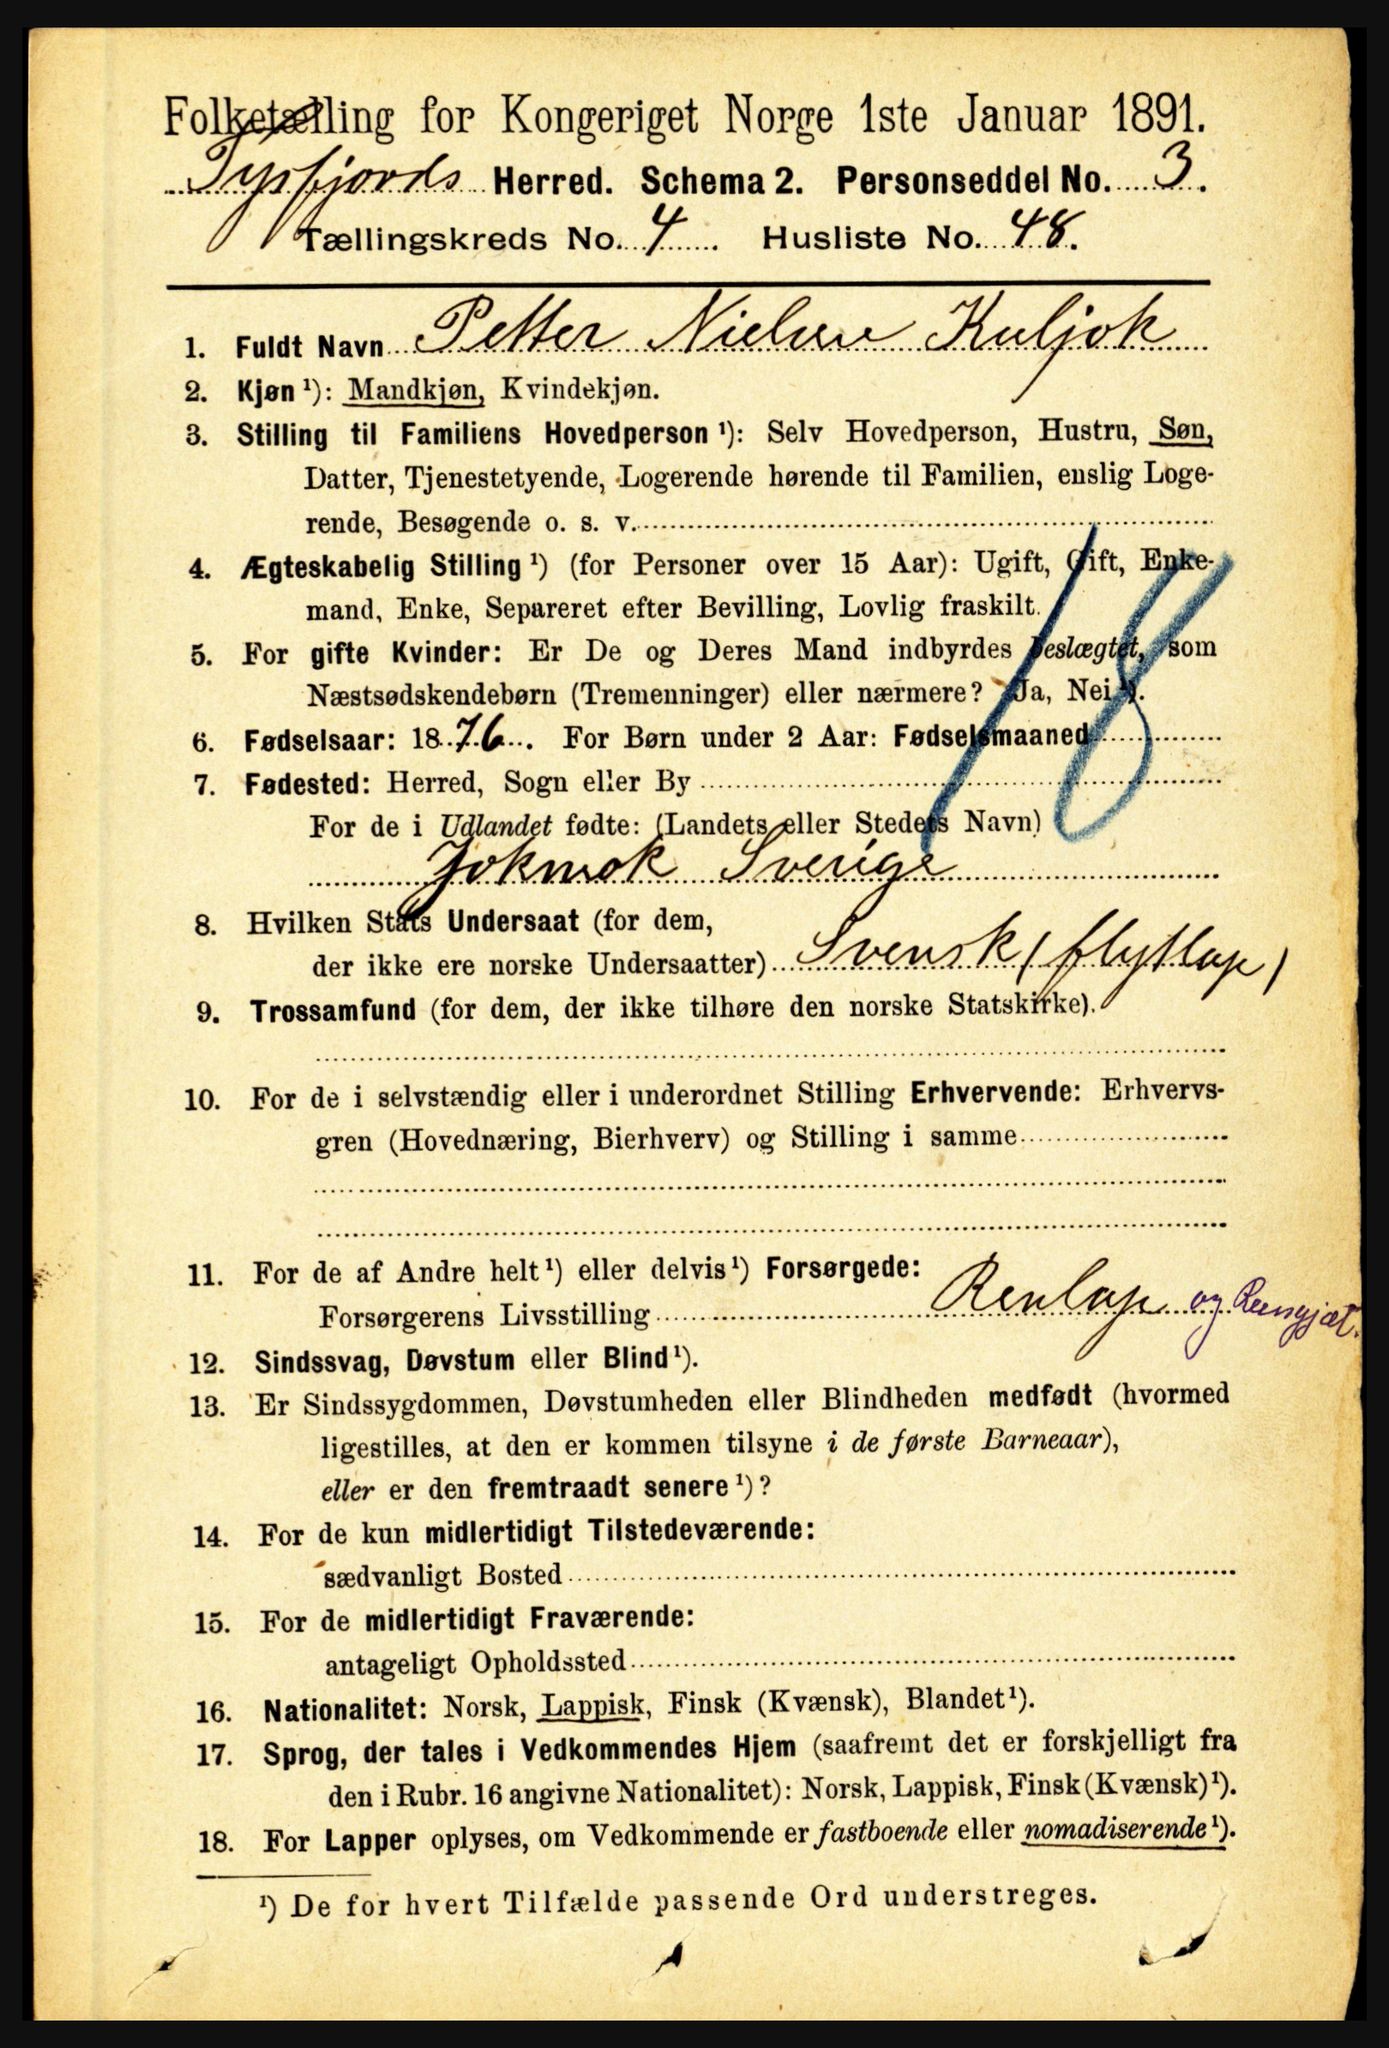 Folketælling for Kongeriget Norge 1ste Januar 1891.
Tysfjords Herred. Schema 2. Personseddel No. 3.
Tællingskreds No. 4. Husliste No. 48.
1. Fuldt Navn Petter Nielsen Kuljok
2. Kjøn ¹): Mandkjøn, Kvindekjøn.
3. Stilling til Familiens Hovedperson ¹): Selv Hovedperson, Hustru, Søn,
Datter, Tjenestetyende, Logerende hørende til Familien, enslig Loge-
rende, Besøgende o. s. v.
4. Ægteskabelig Stilling ¹) (for Personer over 15 Aar): Ugift, Gift, Enke-
mand, Enke, Separeret efter Bevilling, Lovlig fraskilt.
5. For gifte Kvinder: Er De og Deres Mand indbyrdes beslægtet, som
Næstsødskendebørn (Tremenninger) eller nærmere? Ja, Nei ¹).
18
6. Fødselsaar: 1876. For Børn under 2 Aar: Fødselsmaaned
7. Fødested: Herred, Sogn eller By
For de i Udlandet fødte: (Landets eller Stedets Navn)
Jokmok Sverige
8. Hvilken Stats Undersaat (for dem,
der ikke ere norske Undersaatter) Svensk (flytlap)
9. Trossamfund (for dem, der ikke tilhøre den norske Statskirke).
10. For de i selvstændig eller i underordnet Stilling Erhvervende: Erhvervs-
gren (Hovednæring, Bierhverv) og Stilling i samme
11. For de af Andre helt ¹) eller delvis ¹) Forsørgede:
Forsørgerens Livsstilling Renlap og Reensgjæt.
12. Sindssvag, Døvstum eller Blind ¹).
13. Er Sindssygdommen, Døvstumheden eller Blindheden medfødt (hvormed
ligestilles, at den er kommen tilsyne i de første Barneaar),
eller er den fremtraadt senere ¹)?
14. For de kun midlertidigt Tilstedeværende:
sædvanligt Bosted
15. For de midlertidigt Fraværende:
antageligt Opholdssted
16. Nationalitet: Norsk, Lappisk, Finsk (Kvænsk), Blandet ¹).
17. Sprog, der tales i Vedkommendes Hjem (saafremt det er forskjelligt fra
den i Rubr. 16 angivne Nationalitet): Norsk, Lappisk, Finsk (Kvænsk) ¹).
18. For Lapper oplyses, om Vedkommende er fastboende eller nomadiserende ¹).
¹) De for hvert Tilfælde passende Ord understreges.